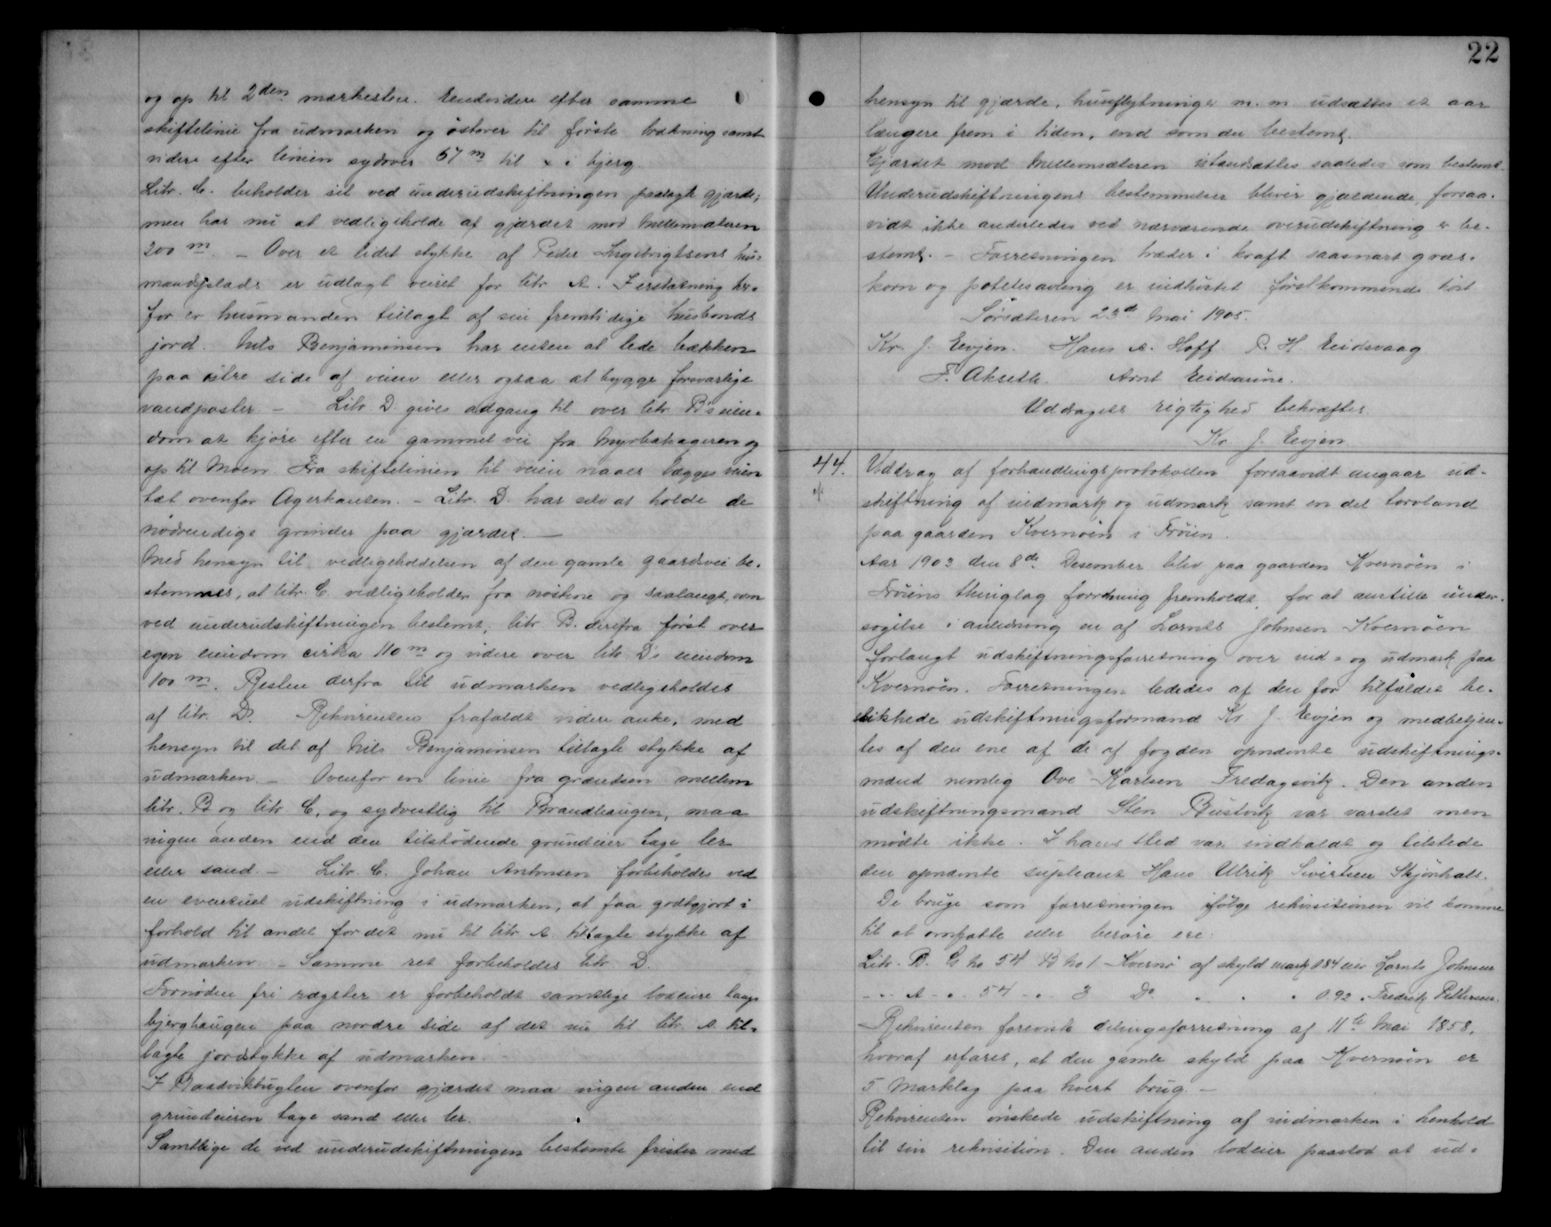 og op til 2den merkesten. Endvidere efter samme
skiftelinie fra udmarken og østover til første brækning samt
videre efter linien sydover 67 m til x i bjerg
Litr. C. beholder sit ved underudskiftningen paalagt gjærde;
men har nu at vedligeholde af gjærdet mod Mellemsæteren
200 m. - Over et lidet stykke af Peder Ingebrigtsens hus-
mandsplads er udlagt veiret for litr A. I erstatning her-
for er husmanden tillagt af sin fremtidige husbonds
jord. Nils Benjaminsen har enten at lede bækken
paa søtre side af veien eller ogsaa at bygge forsvarlige
vandposter. - Litr. D. gives adgang til over litr. B's eien-
dom at kjøre efter en gammel vei fra Myrbakageren og
op til Moen. Fra skiftelinien til veien naaes lægges veien
tæt ovenfor Agerhausen. - Litr. D. har selv at holde de
nødvendige grinder paa gjærdet. -
Med hensyn til vedligeholdelsen af den gamle gaardsvei be-
stemmes, at litr. C. vedligeholder fra nøstene og saalangt, som
ved underudskiftningen bestemt, litr. B. derefra først over
egen eiendom cirka 110 m og videre over litr. D's eiendom
100 m. Resten derfra til udmarken vedligeholdes
af litr. D. Rekvirenten frafaldt videre anke, med
hensyn til det af Nils Benjaminsen tillagte stykke af
udmarken. - Ovenfor en linie fra grændsen mellem
litr. B og litr C, og sydvestlig til Brandhaugen, maa
ingen anden end den tilstødende grundeier tage ler
eller sand. - Litr. C. Johan Antonsen forbeholdes ved
en eventuel udskiftning i udmarken, at faa godtgjort i
forhold til andel for det nu til litr A. tillagte stykke af
udmarken. - Samme ret forbeholdes litr D.
Fornøden fri rægster er forbeholdt samtlige lodeiere langs
bjerghaugene paa nordre side af det nu til litr. A til-
lagte jordstykke af udmarken. -
I Baadvikbugten ovenfor gjærdet maa ingen anden end
grundeieren tage sand eller ler.
Samtlige de ved underudskiftningen bestemte frister med
22
hensyn til gjærde, husflytninger m. m udsættes et aar
længere frem i tiden, end som der bestemt.
Gjærdet mod Mellemsæteren istandsættes saaledes som bestemt.
Underudskiftningens bestemmelser bliver gjældende, forsaa-
vidt ikke anderledes ved nærværende overudskiftning er be-
stemt. - Forretningen træder i kraft saasnart græs-
korn og potetesavling er indhøstet førstkommende høst
Sørsæteren 23de Mai 1905.
Kr. J. Evjen. Hans A. Hoff P. H. Eidsvaag
T. Aksetb. Arnt Eidsaune.
Uddragets rigtighed bekræfter
Kr J. Evjen
44. Uddrag af forhandlingsprotokollen forsaavidt angaar ud-
skiftning af indmark og udmark samt en del torvland
paa gaarden Kvernøen i Frøien.
Aar 1903 den 8de Desember blev paa gaarden Kvernøen i
Frøiens thinglag forretning fremholdt, for at anstille under-
søgelse i anledning en af Lornts Johnsen Kvernøen
forlangt udskiftningsforretning over ind- og udmark paa
Kvernøen. Forretningen lededes af den for tilfældet be-
skikkede udskiftningsformand Kr J. Evjen og medbetjen-
tes af den ene af de af fogden opnævnte udskiftnings-
mænd nemlig Ove Karlsen Fredagsvik. Den anden
udskiftningsmand Sten Bustvik var varslet men
mødte ikke. I hans sted var indkaldt og tilstede
den opnævnte supleant Hans Ulrik Sivertsen Skjønhals.
De bruge som forretningen ifølge rekvisitionen vil komme
til at omfatte eller berøre ere:
Litr. B. G No 54 B No 1 Kvernø af skyld mark 0 84 eier Lornts Johnsen
- - A - " 54 - " 3 Do " " " 0.92 " Fredrik Pettersen.
Rekvirenten foreviste delingsforretning af 11te Mai 1858,
hvoraf erfares, at den gamle skyld paa Kvernøen er
5 Marklag paa hvert brug. -
Rekvirenten ønskede udskiftning af indmarken i henhold
til sin rekvisition. Den anden lodeier paastod at ud-